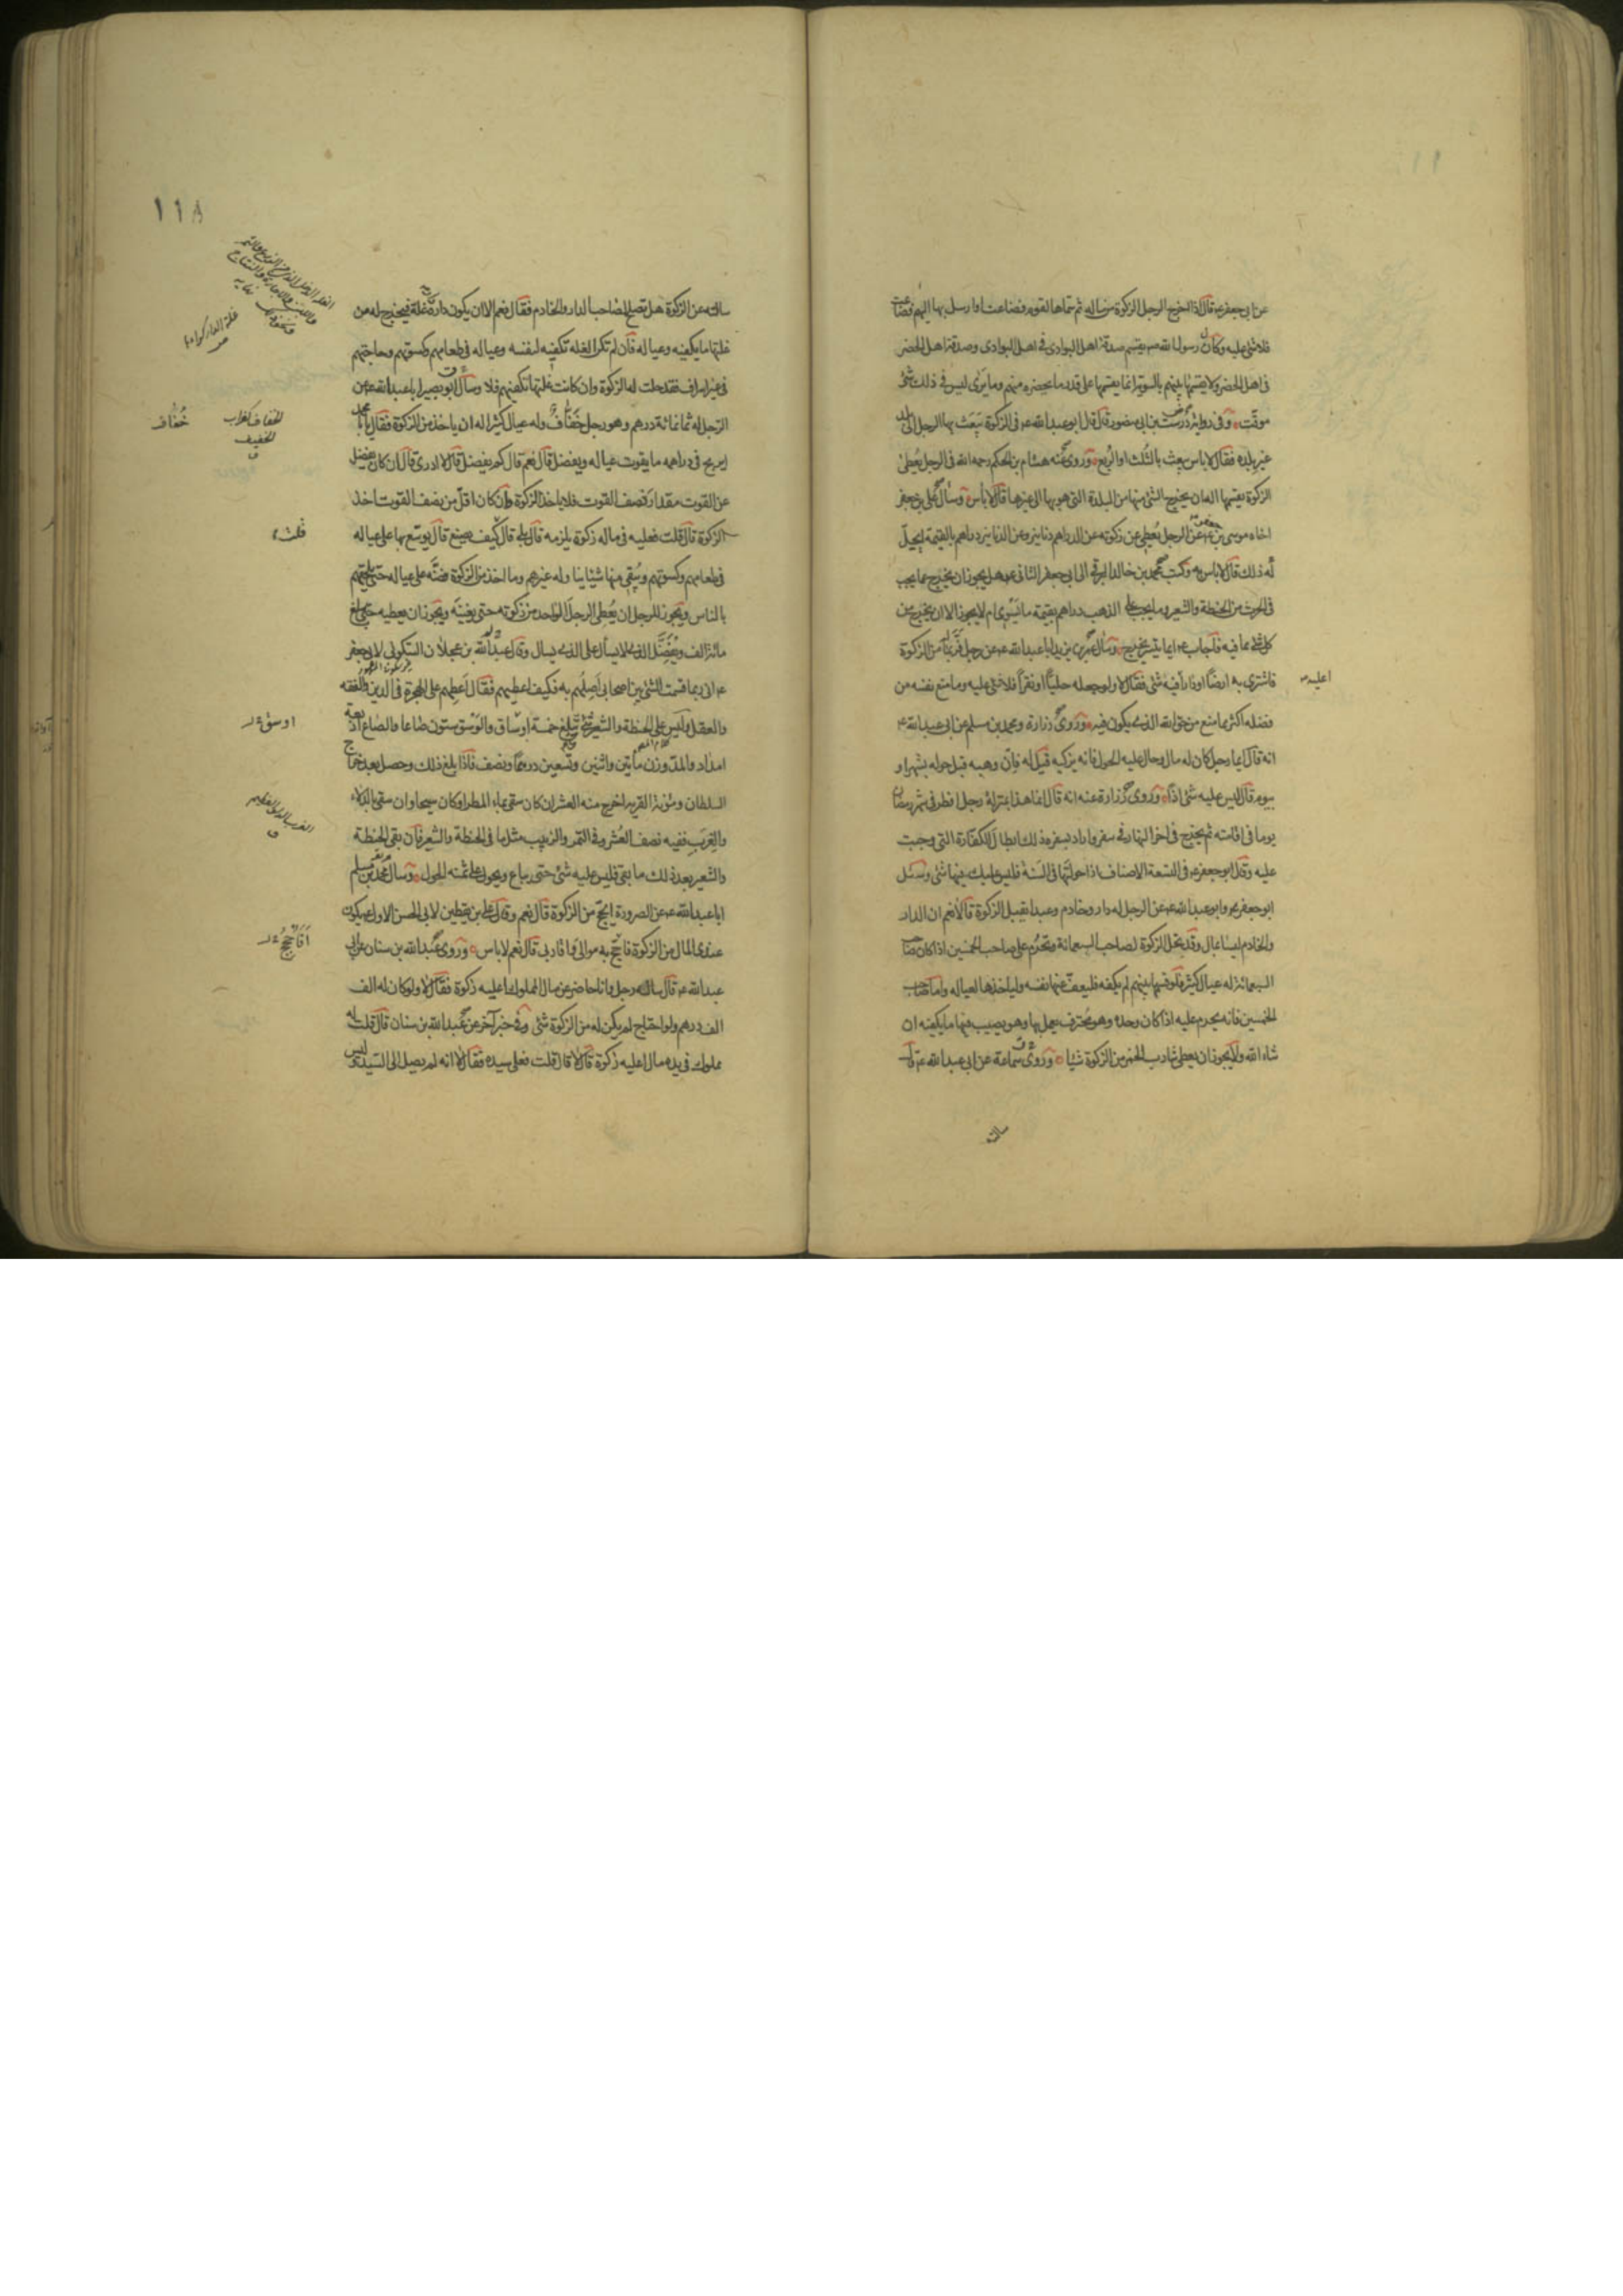 عن ابى جعفر ع قال اذا اخرج الرجل الزكوة من ماله ثم سماها لقوم فضاعت او ارسل بها اليهم فضاعت
فلا شئ عليه وكان رسول الله ص يقسم صدقة اهل البوادى فى اهل البوادى وصدقة اهل الحضر
فى اهل الحضر ولا يقسمها بينهم بالسوية انما يقسمها على قدر ما يحضره منهم وما يرى ليس فى ذلك شئ
موقت وفى رواية درست بن ابى منصور قال قال ابو عبد الله ع فى الزكوة يبعث بها الرجل الى بلد
غير بلده فقال لا باس يبعث بالثلث او الربع وروى عنه هشام بن الحكم رحمه الله فى الرجل يعطى
الزكوة يقسمها اله ان يخرج الشئ منها من البلدة التى هو بها الى غيرها قال لا باس وسأل على بن جعفر
اخاه موسى بن جعفر ع عن الرجل يعطى عن زكوته عن الدراهم دنانير وعن الدنانير دراهم بالقيمة ايحل
له ذلك قال لا باس به وكتب محمد بن خالد البرقى الى ابى جعفر الثانى ع هل يجوز ان يخرج عما يجب
فى الحرث من الحنطة والشعير وما يجب على الذهب دراهم بقيمة ما يسوى ام لا يجوز الا ان يخرج من
كل شئ ما فيه فاجاب ع ايما تيسر يخرج وسأل عمر بن يزيد ابا عبد الله ع عن رجل فر بماله من الزكوة
فاشترى به ارضا او دارا أفيه شئ فقال لا ولو جعله حليا او نقرا فلا شئ عليه وما منع نفسه من
فضله اكثر مما منع من حق الله الذى يكون فيه وروى زرارة ومحمد بن مسلم عن ابى عبد الله ع
انه قال ايما رجل كان له مال وحال عليه الحول فانه يزكيه قيل له فان وهبه قبل حوله بشهر او
بيوم قال ليس عليه شئ اذا وروى زرارة عنه انه قال انما هذا بمنزلة رجل افطر فى شهر رمضان
يوما فى اقامته ثم يخرج فى اخر النهار فى سفر واراد بسفره ذلك ابطال الكفارة التى وجبت
عليه وقال ابو جعفر ع فى التسعة الاصناف اذا حولتها فى السنة فليس عليك فيها شئ وسئل
ابو جعفر ع وابو عبد الله ع عن الرجل له دار وخادم وعبد ايقبل الزكوة قالا نعم ان الدار
والخادم ليسا بمال وقد تحل الزكوة لصاحب السبعمائة وتحرم على صاحب الخمسين اذا كان صاحب
السبعمائة له عيال كثير فلو قسمها بينهم لم يكفه فليعف عنها نفسه ولياخذها لعياله واما صاحب
الخمسين فانه يحرم عليه اذا كان وحده وهو محترف يعمل بها وهو يصيب فيها ما يكفيه ان
شاء الله ولا يجوز ان يعطى شارب الخمر من الزكوة شيئا وروى سماعة عن ابى عبد الله ع قال
سالته
١١٨
سالته عن الزكوة هل تصلح لصاحب الدار والخادم فقال نعم الا ان يكون داره دار غلة فيخرج له من
غلتها ما يكفيه وعياله فان لم تكن الغلة تكفيه لنفسه وعياله فى طعامهم وكسوتهم وحاجتهم
فى غير اسراف فقد حلت له الزكوة وان كانت غلتها تكفيهم فلا وسأل ابو بصير ابا عبد الله ع عن
الرجل له ثمانمائة درهم وهو رجل خفاف وله عيال كثير اله ان ياخذ من الزكوة فقال يا با محمد
ايربح فى دراهمه ما يقوت عياله ويفضل قال نعم قال كم يفضل قال لا ادرى قال ان كان يفضل
عن القوت مقدار نصف القوت فلا ياخذ الزكوة وان كان اقل من نصف القوت اخذ
الزكوة قال قلت فعليه فى ماله زكوة يلزمه قال بلى قال كيف يصنع قال يوسع بها على عياله
فى طعامهم وكسوتهم ويبقى منها شيئا يناوله غيرهم وما اخذ من الزكوة فضه على عياله حتى يلحقهم
بالناس ويجوز للرجل ان يعطى الرجل الواحد من زكوته حتى يغنيه ويجوز ان يعطيه حتى يبلغ
مائة الف ويفضل الذى لا يسأل على الذى يسال وقال عبد الله بن عجلان السكونى لابى جعفر
ع انى ربما قسمت الشئ بين اصحابى اصلهم به فكيف اعطيهم فقال اعطهم على الهجرة فى الدين والفقه
والعقل وليس على الحنطة والشعير شئ حتى تبلغ خمسة اوساق والوسق ستون صاعا والصاع اربعة
امداد والمد وزن مأتين واثنين وتسعين درهما ونصف فاذا بلغ ذلك وحصل بعد خراج
السلطان ومؤنة القرية اخرج منه العشر ان كان سقى بماء المطر او كان سيحا وان سقى بالدلاء
والغرب ففيه نصف العشر وفى التمر والزبيب مثل ما فى الحنطة والشعير فان بقى الحنطة
والشعير بعد ذلك ما بقى فليس عليه شئ حتى يباع ويحول على ثمنه الحول وسأل محمد بن مسلم
ابا عبد الله ع عن الصرورة ايحج من الزكوة قال نعم وقال على بن يقطين لابى الحسن الاول ع يكون
عندى المال من الزكوة فاحج به موالى واقاربى قال نعم لا باس وروى عبد الله بن سنان عن ابى
عبد الله ع قال ساله رجل وانا حاضر عن مال المملوك اعليه زكوة فقال لا ولو كان له الف
الف درهم ولو احتاج لم يكن له من الزكوة شئ وفى خبر آخر عن عبد الله بن سنان قال قلت له
مملوك فى يده مال اعليه زكوة قال لا قال قلت فعلى سيده فقال لا انه لم يصل الى السيد وليس
خفاف
الخفاف كغراب
الخفيف
ق
قلت
اوسق
أفأحج
اعليه